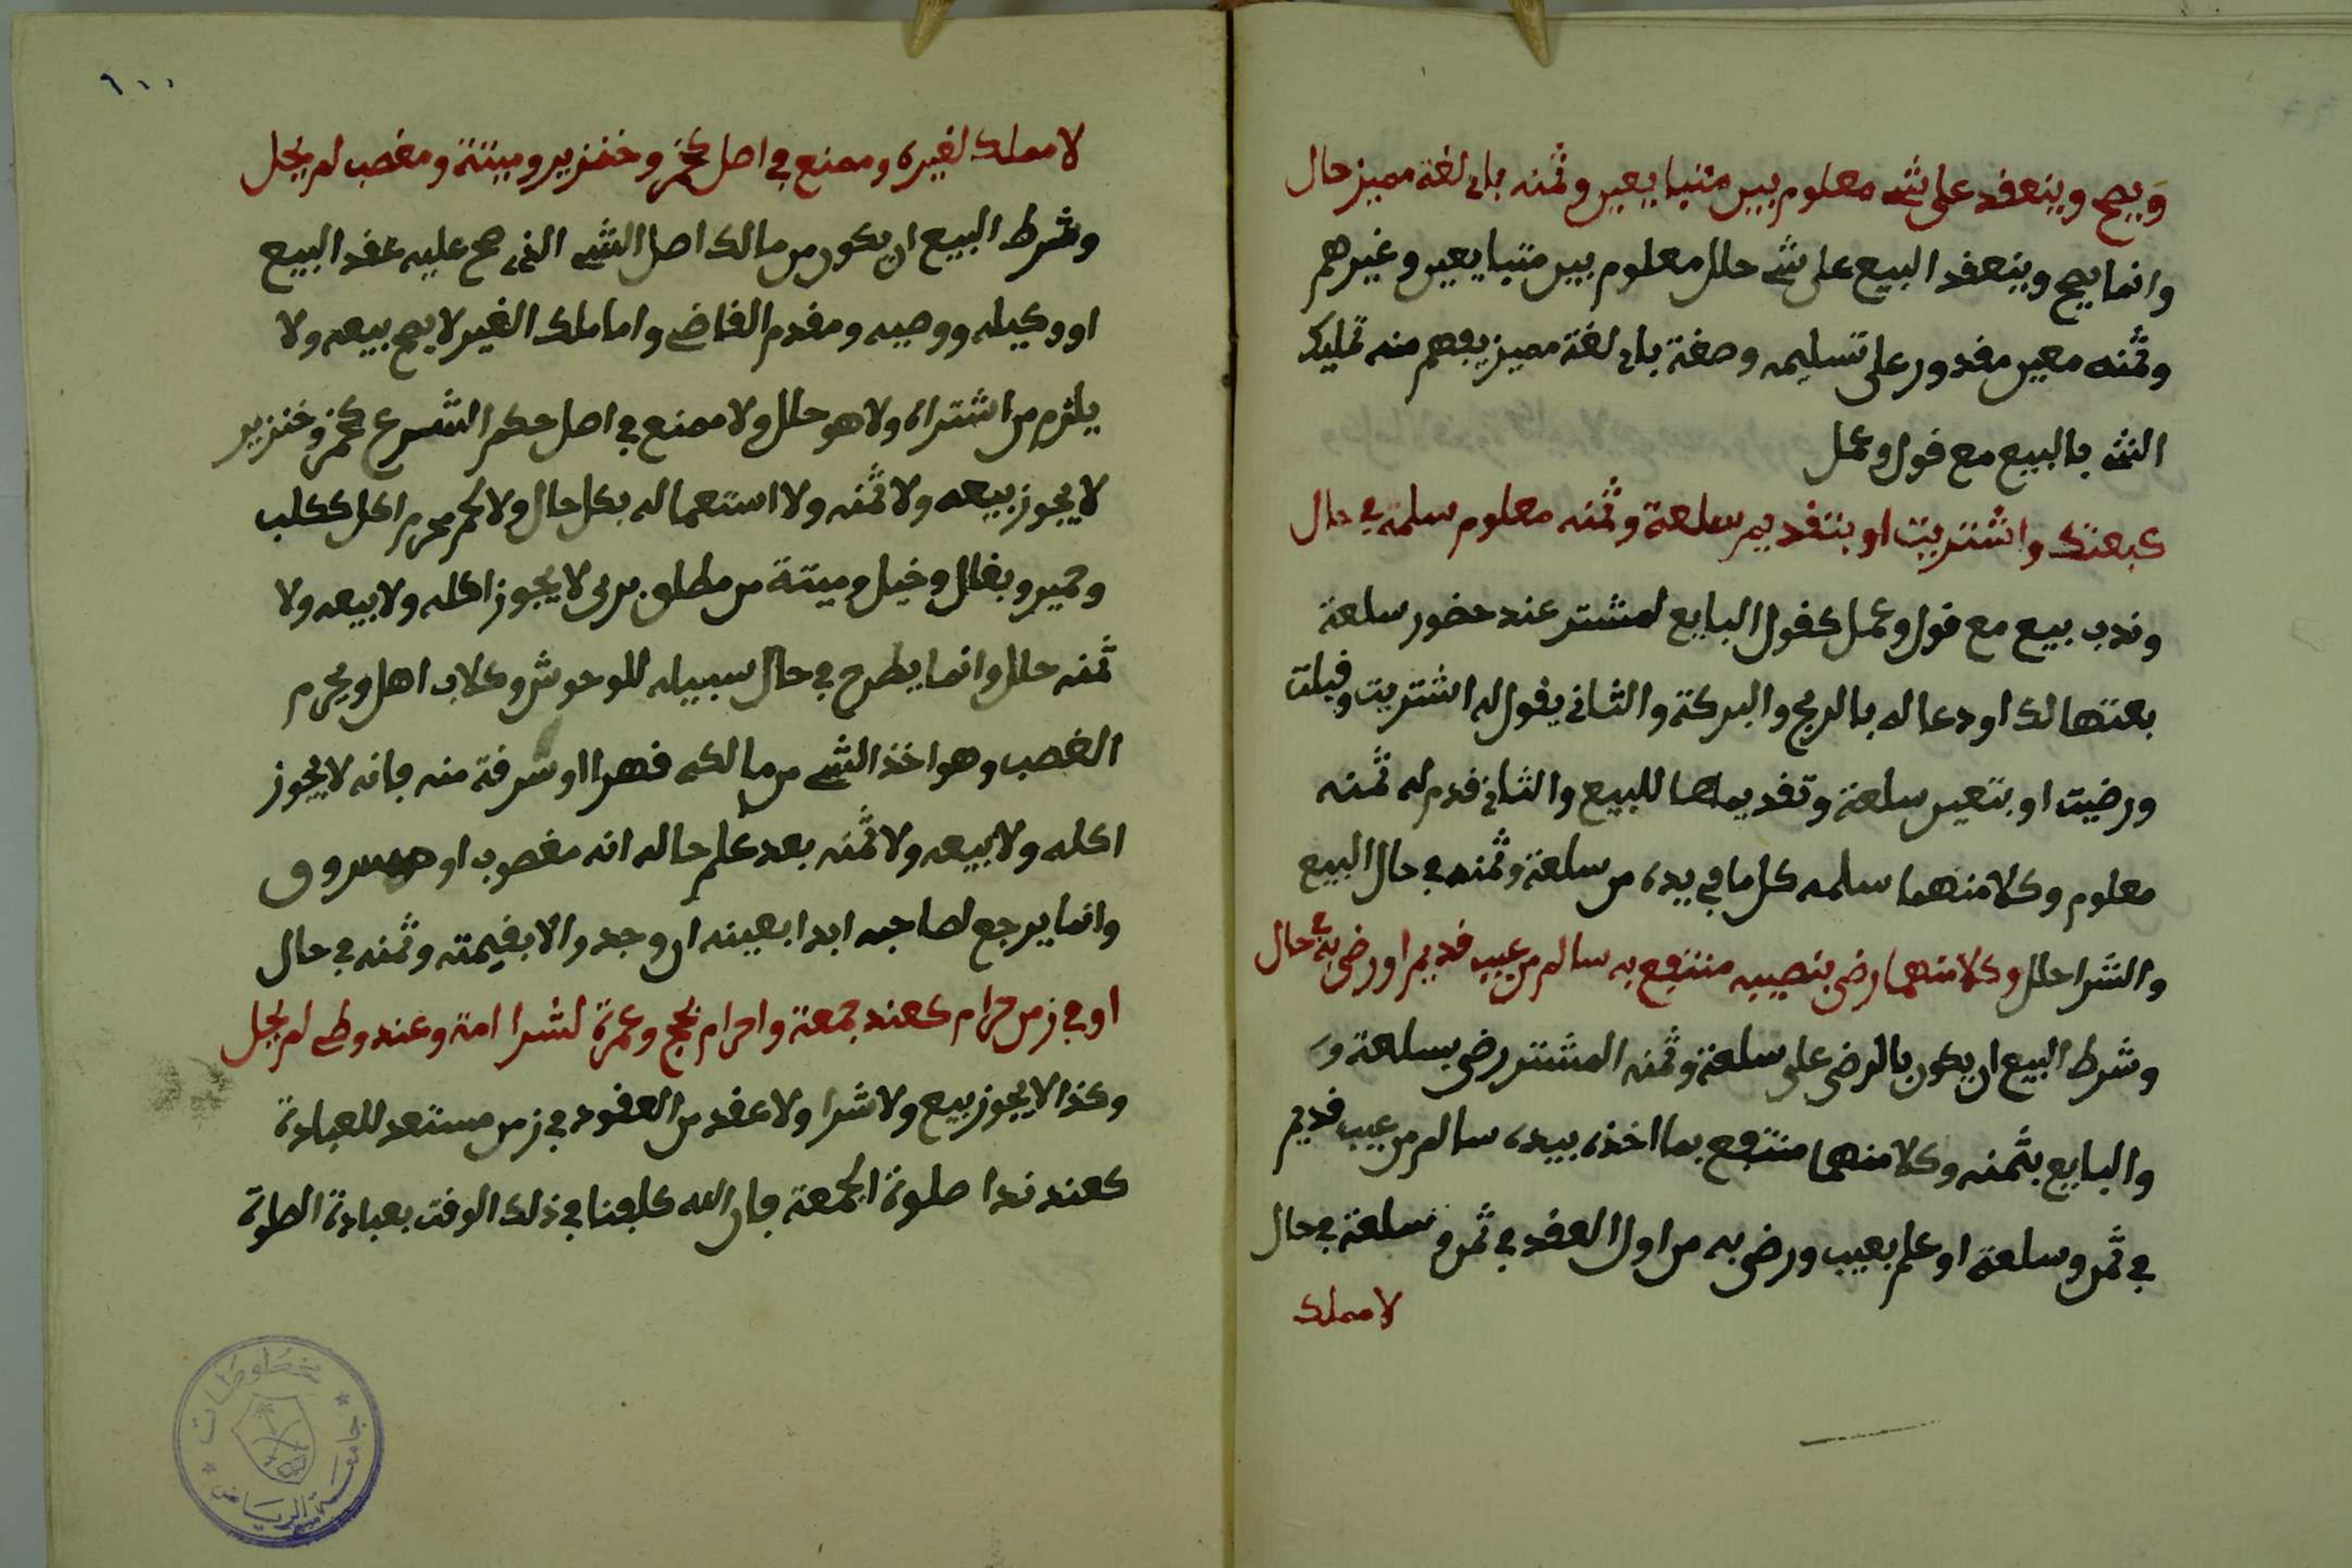 ويصح وينعقد على شے معلوم بين متبايعين وثمنه باى لغة مميز حال
وانما يصح وينعقد البيع على شے حلل معلوم بين متبايعين وغيرهم
وثمنه معين مقدور على تسليمه وصفة باى لغة مميز يفهم منه تمليك
الشے بالبيع مع قول وعمل
كبعتك واشتريت او بتقديم سلعة وثمنه معلوم سلمه في حال
وندب بيع مع قول وعمل كقول البايع لمشتر عند حضور سلعة
بعتها لك او دعا له بالربح والبركة والثانى يقول له اشتريت وقبلت
ورضيت او بتعين سلعة وتقديمها للبيع والثانى قدم له ثمنه
معلوم وكلا منهما سلمه كل ما في يده من سلعة وثمنه في حال البيع
والشرا حلل وكلا منهما رضى بنصيبه منتفع به سالم من عيب قديم او رضى به في حال
وشرط البيع ان يكون بالرضى على سلعة وثمنه المشتر رضى بسلعة و
والبايع بثمنه وكلا منهما منتفع بما اخذه بيده سالم من عيب قديم
في ثمن وسلعة او علم بعيب ورضى به من اول العقد في ثمن وسلعة في حال
لا مملك
٦٠٠
لا مملك لغيره وممنع في اصل كخمر وخنزير وميتة ومغصب لم يحل
وشرط البيع ان يكون من مالك اصل الشے الذى صح عليه عقد البيع
او وكيله ووصيه ومقدم القاضے واما ملك الغير لا يصح بيعه ولا
يلزم من اشتراه ولا هو حلل ولا ممنع في اصل حكم الشرع كخمر وخنزير
لا يجوز بيعه ولا ثمنه ولا استعماله بكل حال ولا لحم محرم اكل ككلب
وحمير وبغال وخيل وميتة من مطلق برى لا يجوز اكله ولا بيعه ولا
ثمنه حلل وانما يطرح في حال سبيله للوحوش وكلاب اهل ويحرم
الغصب وهو اخذ الشے من مالكه قهرا او سرقة منه فانه لا يجوز
اكله ولا بيعه ولا ثمنه بعد علم حاله انه مغصوب او مسروق
وانما يرجع لصاحبه ابدا بعينه ان وجد والا بقيمته وثمنه في حال
او في زمن حرام كعند جمعة واحرام بحج وعمرة لشرا امة وعند وطے لم يحل
وكذا لا يجوز بيع ولا شرا ولا عقد من العقود في زمن مستعد للعبادة
كعند ندا صلوة الجمعة فان الله كلفنا في ذلك الوقت بعبادة الصلوة
مخطوطات
جامعة الرياض